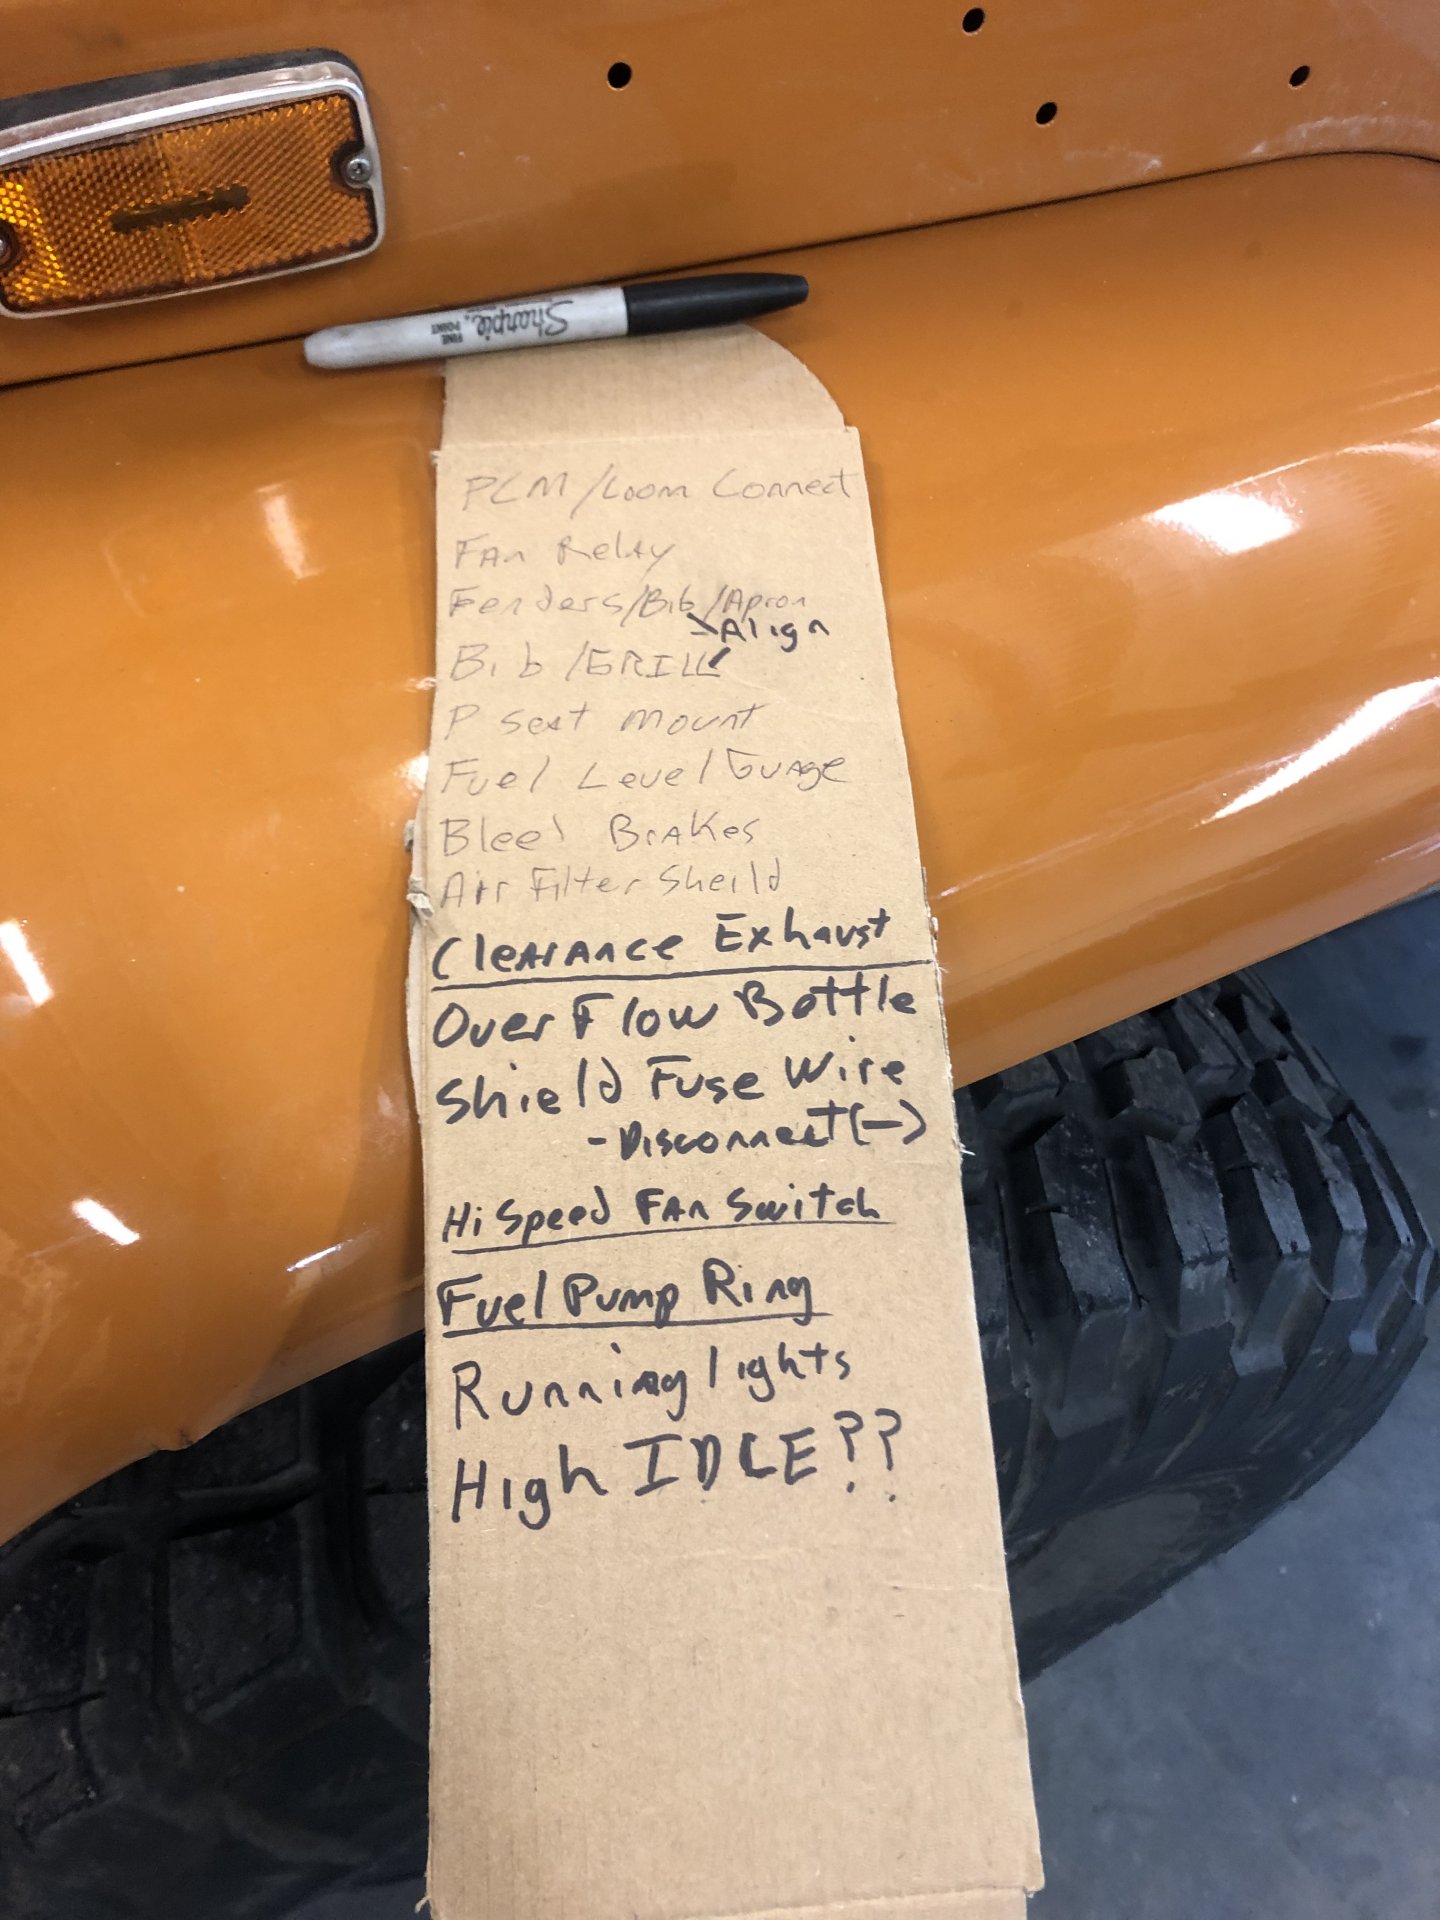 Sharpie.
FINE
POINT
PCM/Loom Connect
FAn Relay
Fenders/Bib/Apron
Align
Bib/GRILL
P Seat mount
Fuel Level Guage
Bleed BrAKes
Air Filter Sheild
CleArAnce Exhaust
Over Flow Bottle
Shield Fuse Wire
-Disconnect(-)
Hi Speed FAn Switch
Fuel Pump Ring
Running lights
High IDLE??